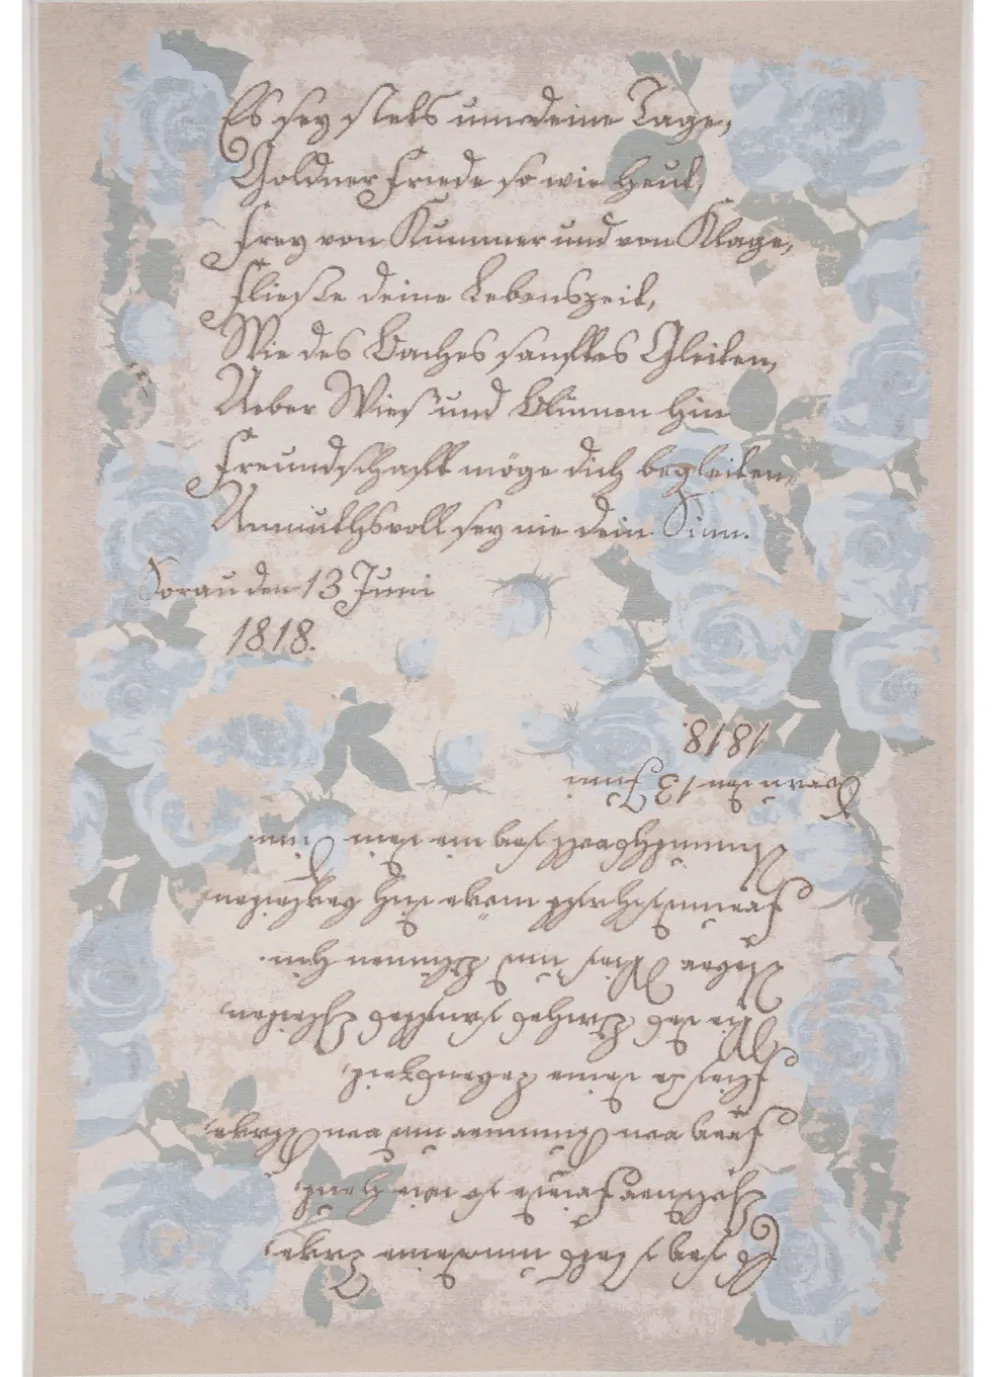 Es sey stets um deine Tage,
Goldner Friede so wie heut,
Frey von Kummer und von Klage,
Fließe deine Lebenszeit,
Wie des Baches sanftes Gleiten,
Ueber Wies' und Blumen hin
Freundschaft möge dich begleiten,
Anmuthsvoll sey nie dein Sinn.
Sorau den 13 Juni
1818.
1818.
Sorau den 13 Juni
Anmuthsvoll sey nie dein Sinn.
Freundschaft möge dich begleiten,
Ueber Wies' und Blumen hin.
Wie des Baches sanftes Gleiten,
Fließe deine Lebenszeit,
Frey von Kummer und von Klage,
Goldner Friede so wie heut,
Es sey stets um deine Tage,